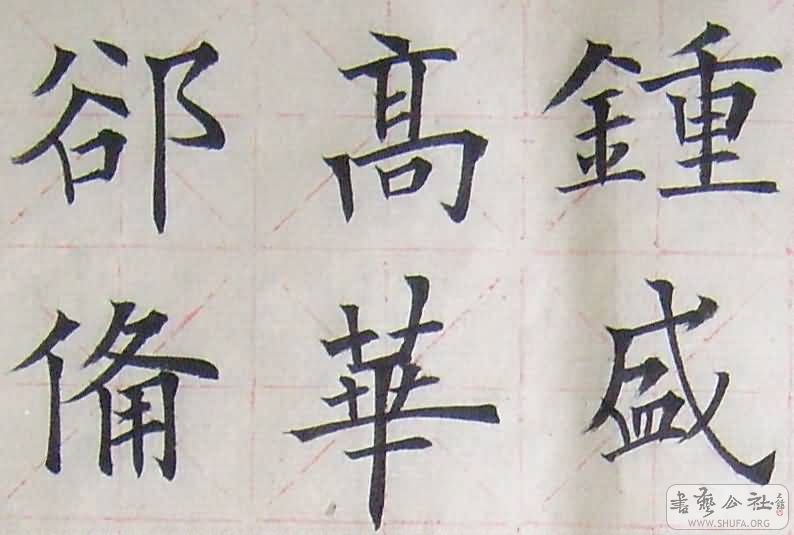 鍾盛
髙華
郤偹
書藝公社
WWW.SHUFA.ORG